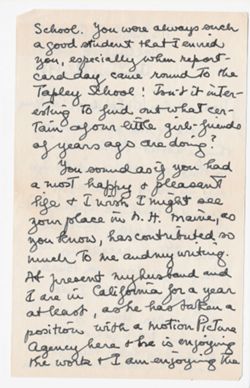 School. You were always such
a good student that I envied
you, especially when report-
card day came round to the
Tapley School! Isn't it inter-
esting to find out what cer-
tain of our little girl-friends
of years ago are doing?
You sound as if you had
a most happy & pleasant
life & I wish I might see
your place in N. H. Maine, as
you know, has contributed so
much to me and my writing.
At present my husband and
I are in California for a year
at least, as he has taken a
position with a Motion Picture
Agency here & he is enjoying
the work & I am enjoying the